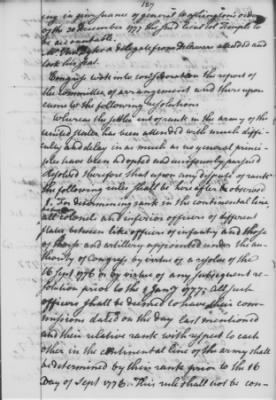 187
ing in pursuance of general Washington's order
of the 22 December 1777 the said
be accountable.
Mr a delegate from Delaware attended and
took his seat.
Congress took into consideration the report of
the committee of arrangement and thereupon
came to the following resolutions
Whereas the settlement of rank in the army of the
united states has been attended with much diffi-
culty and delay in as much as no general princi-
ples have been adopted and uniformly pursued
Resolved therefore that upon any dispute of rank
the following rules shall be hereafter observed
1. For determining rank in the continental line,
all colonels and inferior officers of different
states between like officers of infantry and those
of horse and artillery appointed under the au-
thority of Congress by virtue of a resolve of the
16 Sept 1776 or by virtue of any subsequent re-
solution prior to the 1 Jany 1777; all such
officers shall be deemed to have their com-
missions dated on the day last mentioned
and their relative rank with respect to each
other in the continental line of the army shall
be determined by their rank prior to the 16
Day of Sept 1776. This rule shall not be con-